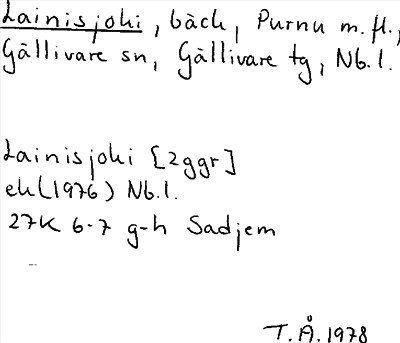 Lainisjoki, bäck, Purnu m.fl.,
Gällivare sn, Gällivare tg, Nb.l.
Lainisjoki [2ggr]
ek(1976) Nb.l.
27K 6-7 g-h Sadjem
T.Å.1978